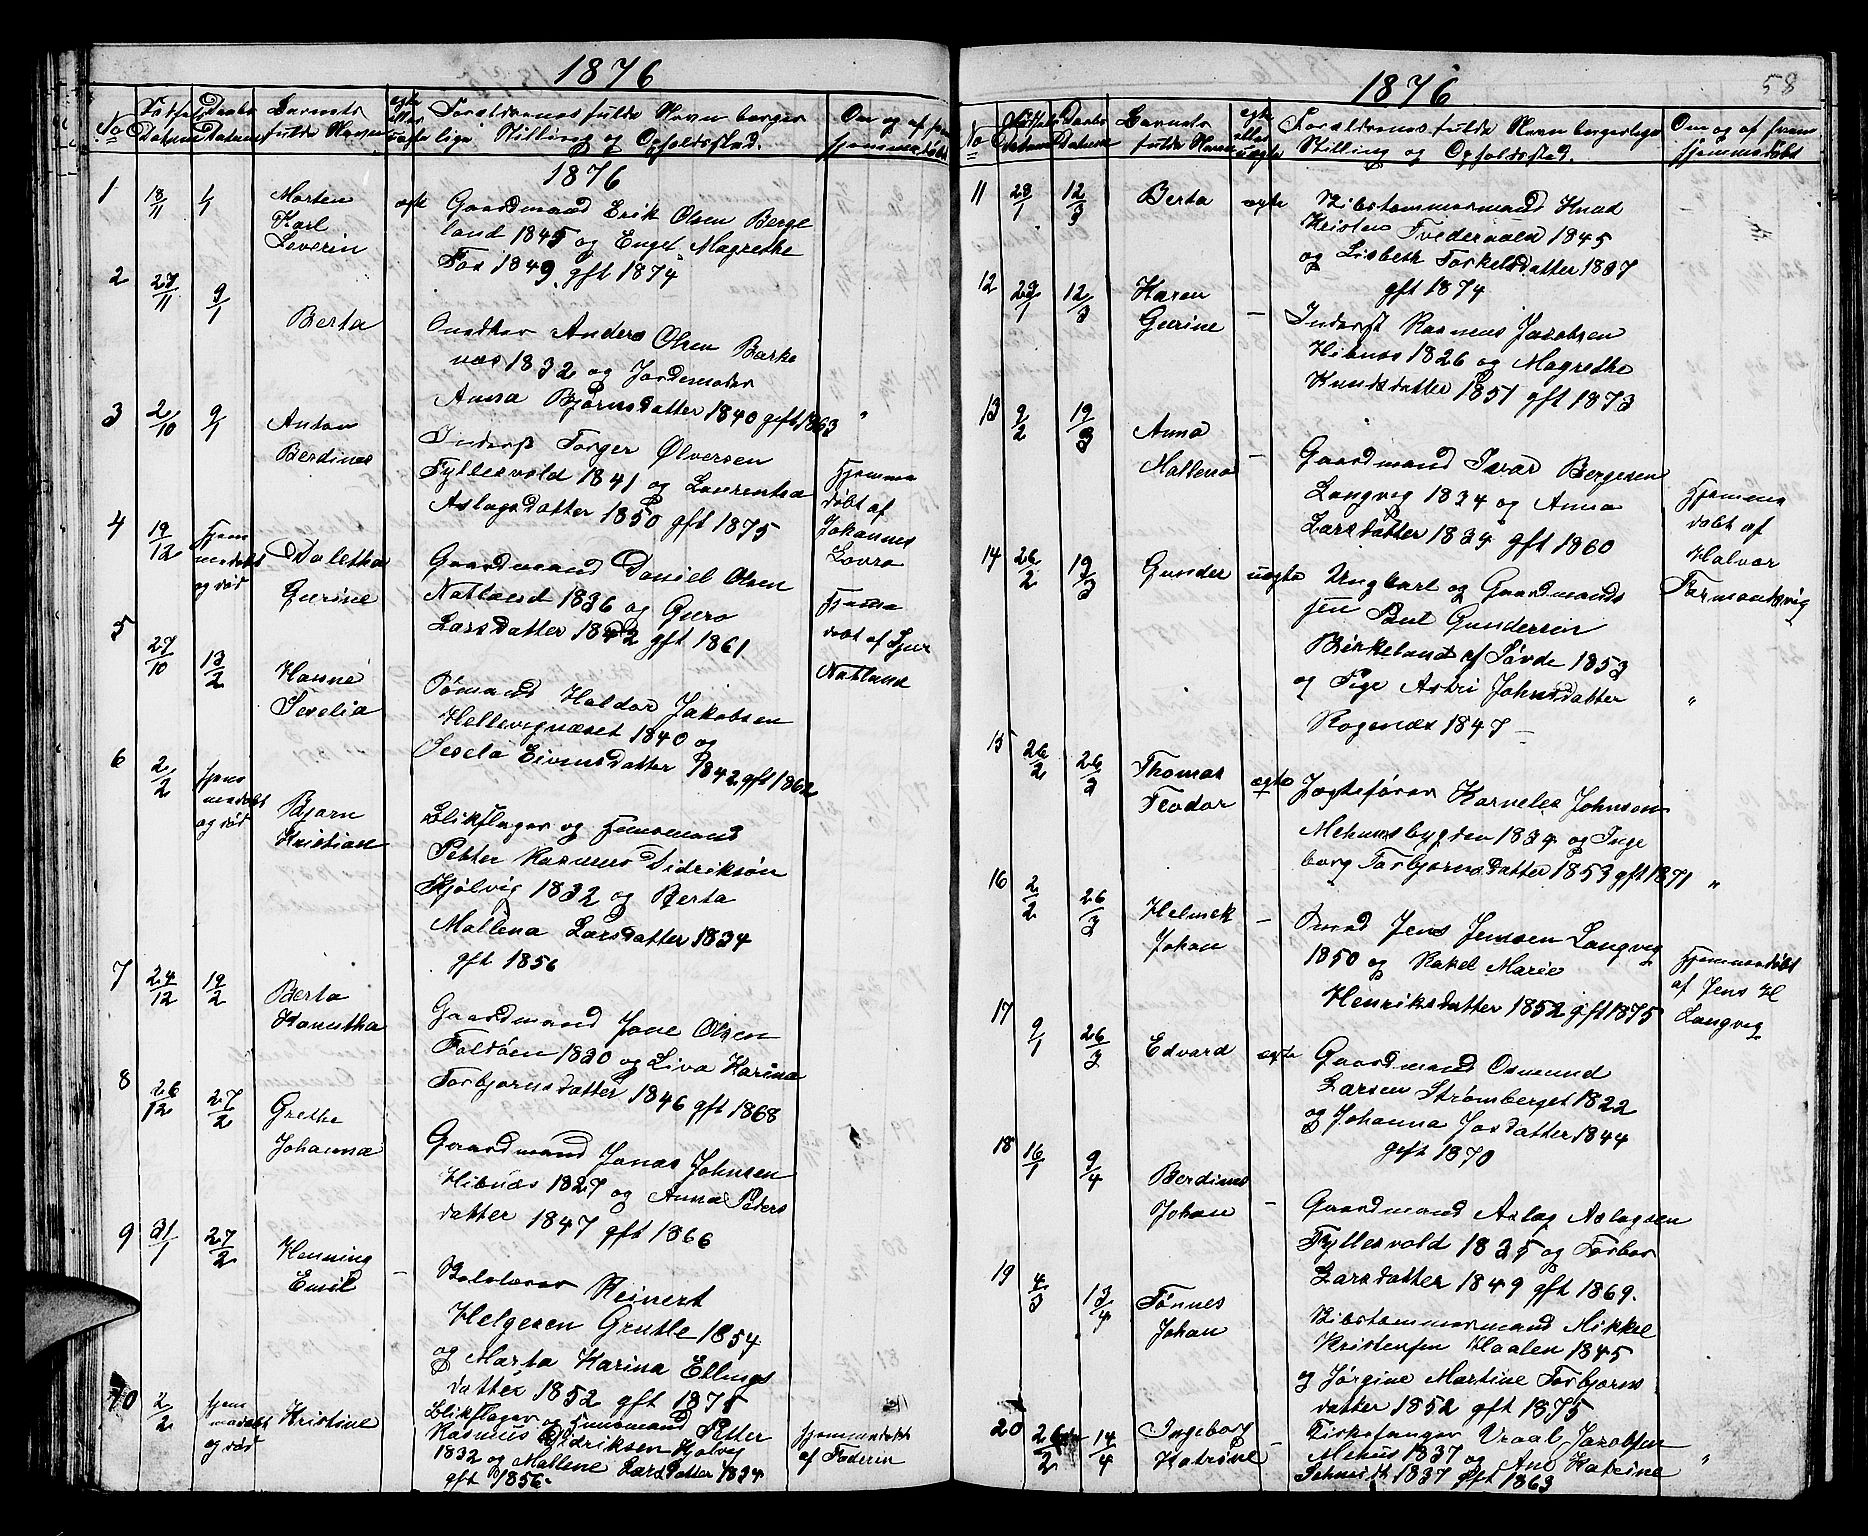 1876
No Fødsels Datum Daabs Datum Barnets fulde Navn egte eller uegte Forældrenes fulde Navn borger lige Stilling og Opholdssted. Om og af hvem hjemmedøbt
1876
1 18/11 Morten egte Gaardmand Erik Olsen Berge
Karl land 1845 og Engel Magrethe
Severin Fos 1849 gft 1874
2 27/11 9/1 Berta Anders Olsen Barke
næs 1832 og Jordemoder
Anna Bjørnsdatter 1840 gift 1863 "
3 2/10 9/1 Anton Inderst Torger Ølversen
Berdines Fyllesvold 1841 og Laurentha Hjemme
Aslagsdatter 1850 gft 1875 døbt af
Johannes
Lovra
4 19/12 Hjem Daletha Gaardmand Daniel Olsen
medøbt Gurine Natland 1836 og Guro Hjemme
og død Larsdatter 1842 gft 1861 døbt af
Natland
5 27/10 13/2 Hanne Sømand Haldor Jakobsen
Seselia Hellevignæset 1840 og
Sesela Eivinsdatter 1842 gft 1862
6 2/2 hjem Bjørn Blikslager og Huusmand
medøbt Kristian Petter Rasmus Didriksøn
og død Hjølvig 1832 og Berta
Mallena Larsdatter 1834
gft 1856
7 24/12 19/2 Berta Gaardmand Jone Olsen
Kanutha Foldøen 1830 og Liva Karina
Torbjornsdatter 1846 gft 1868
8 26/12 27/2 Grethe Gaardmand Jonas Johnsen
Johanna Hibnæs 1827 og Anna Peders
datter 1847 gft 1866
9 31/1 27/2 Henning - Reinert
Emil Helgesen Grutle 1854
og Marta Karina Ellings
datter 1852 gft 1875
10 2/2 hjem Kristine Blikslager og Huusmand Petter
medøbt Rasmus Didriksen Hjølvig hjemmedøbt
og død 1832 og Mallene Larsdatter 1834 af Faderen
gft 1856
1876 58
No Fødsels Datum Daabs Datum Barnets fulde Navn egte eller uegte Forældrenes fulde Navn borgerlige Stilling og Opholdssted. Om og af hvem hjemmedøbt
11 23/1 12/3 Berta egte Skibstømmermand Knud
Tvederaaen 1845
og Lisbeth Torkelsdatter 1837
gft 1874
12 29/1 12/3 Karen - Inderst Rasmus Jacobsen
Gurine Hibnæs 1826 og Magrethe
Knudsdatter 1851 gft 1873
13 9/2 19/3 Anna - Gaardmand Ivar Bergesen
Mallena Langvig 1834 og Anna Hjemme
Larsdatter 1839 gft 1860 døbt af
Halvor
14 26/2 19/3 Gunder uegte Ungkarl og Gaardmands
søn Gundersen
Birkeland af Søvde 1853
og Pige Astri Johnsdatter "
Rogenæs 1847 -
15 26/2 26/3 Thomas egte Jægtefører Karneles Johnsen
Teodor 1834 og Inge
borg Torbjørnsdatter 1853 gft 1871 "
16 2/2 26/3 Helmek - Jens Jensen Langvig
Johan 1850 og Rakel Marie Hjemmedøbt
Henriksdatter 1852 gft 1875 af Jens H
Langvig
17 9/1 26/3 Edvard egte Gaardmand Osmund
Larsen Strømberget 1822
og Johanna Josdatter 1844
gft 1870
18 16/1 9/4 Berdines - Gaardmand Aslag Aslagsen
Johan Fyllesvold 1825 og Torbor
Larsdatter 1849 gft 1869.
19 4/3 13/4 Tønnes Skibstømmermand Mikkel
Johan Kristensen Haalen 1845
og Jørgine Martine Torbjørns
datter 1852 gft 1875
20 26/2 14/4 Ingeborg - Vraal Jacobsen
Katrine Mehus 1837 og Ane Katrine "
1837 gft 1863